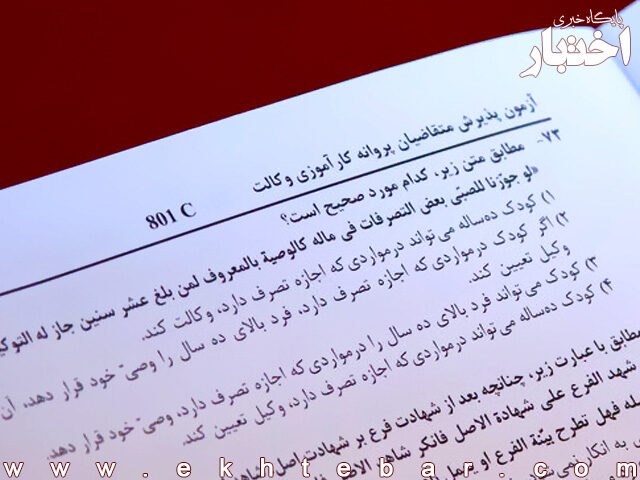 پایگاه خبری
اختبار
آزمون پذیرش متقاضیان پروانه کارآموزی وکالت
801 C
۷۳- مطابق متن زیر، کدام مورد صحیح است؟
«لو جوّزنا للصبّی بعض التصرفات فی ماله کالوصیة بالمعروف لمن بلغ عشر سنین جاز له
۱) کودک ده‌ساله می‌تواند درمواردی که اجازه تصرف دارد، وکالت کند.
۲) اگر کودک درمواردی که اجازه تصرف دارد، فرد بالای ده سال را وصیّ خود قرار دهد، آن
وکیل تعیین کند.
۳) کودک می‌تواند فرد بالای ده سال را درمواردی که اجازه تصرف دارد، وصیّ خود قرار دهد.
۴) کودک ده‌ساله می‌تواند درمواردی که اجازه تصرف دارد، وکیل تعیین کند.
مطابق با عبارت زیر، چنانچه بعد از شهادت فرع بر شهادت اصل
شهد الفرع علی شهادة الاصل فانکر شاهد الاصل
فهل تطرح بیّنة الفرع او یعمل
به انکار
www.ekhtebar.com